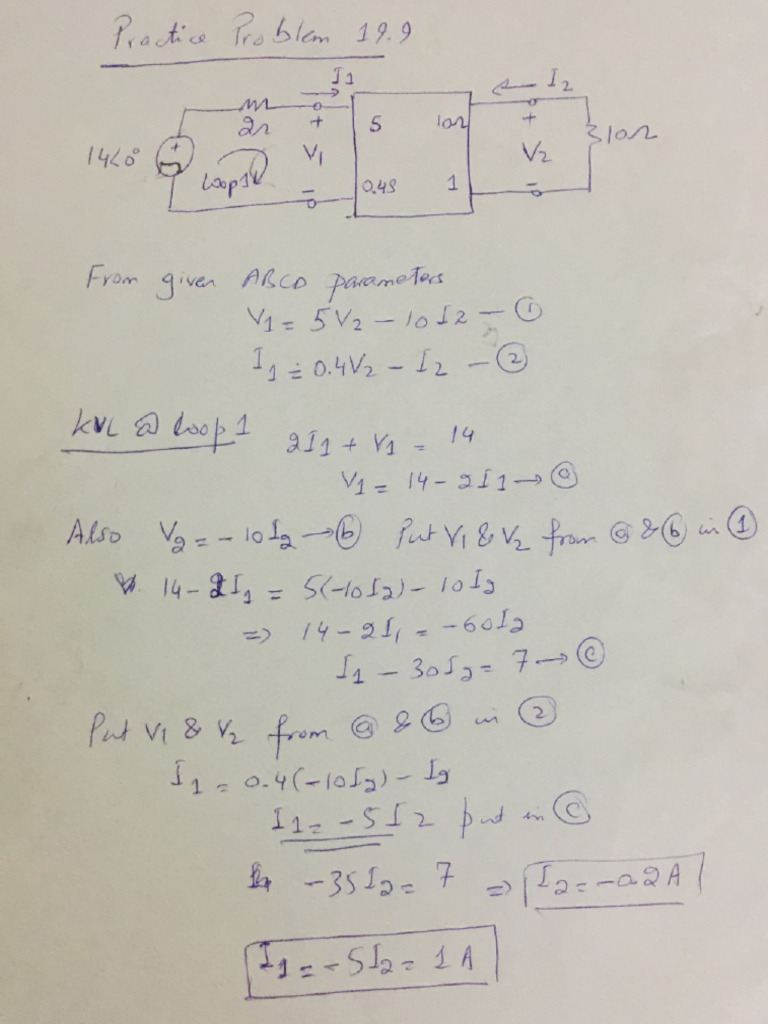 Practice Problem 19.9
I1 I2
2Ω + 5 10Ω + 10Ω
14<0° + V1 V2
loop1 - 0.4S 1 -
From given ABCD parameters
V1 = 5V2 - 10I2 - ①
I1 = 0.4V2 - I2 - ②
KVL @ loop 1 2I1 + V1 = 14
V1 = 14 - 2I1 → ⓐ
Also V2 = - 10I2 → ⓑ Put V1 & V2 from ⓐ & ⓑ in ①
14 - 2I1 = 5(-10I2) - 10I2
=> 14 - 2I1 = -60I2
I1 - 30I2 = 7 → ⓒ
Put V1 & V2 from ⓐ & ⓑ in ②
I1 = 0.4(-10I2) - I2
I1 = -5I2 put in ⓒ
-35I2 = 7 => I2 = -0.2A
I1 = -5I2 = 1A